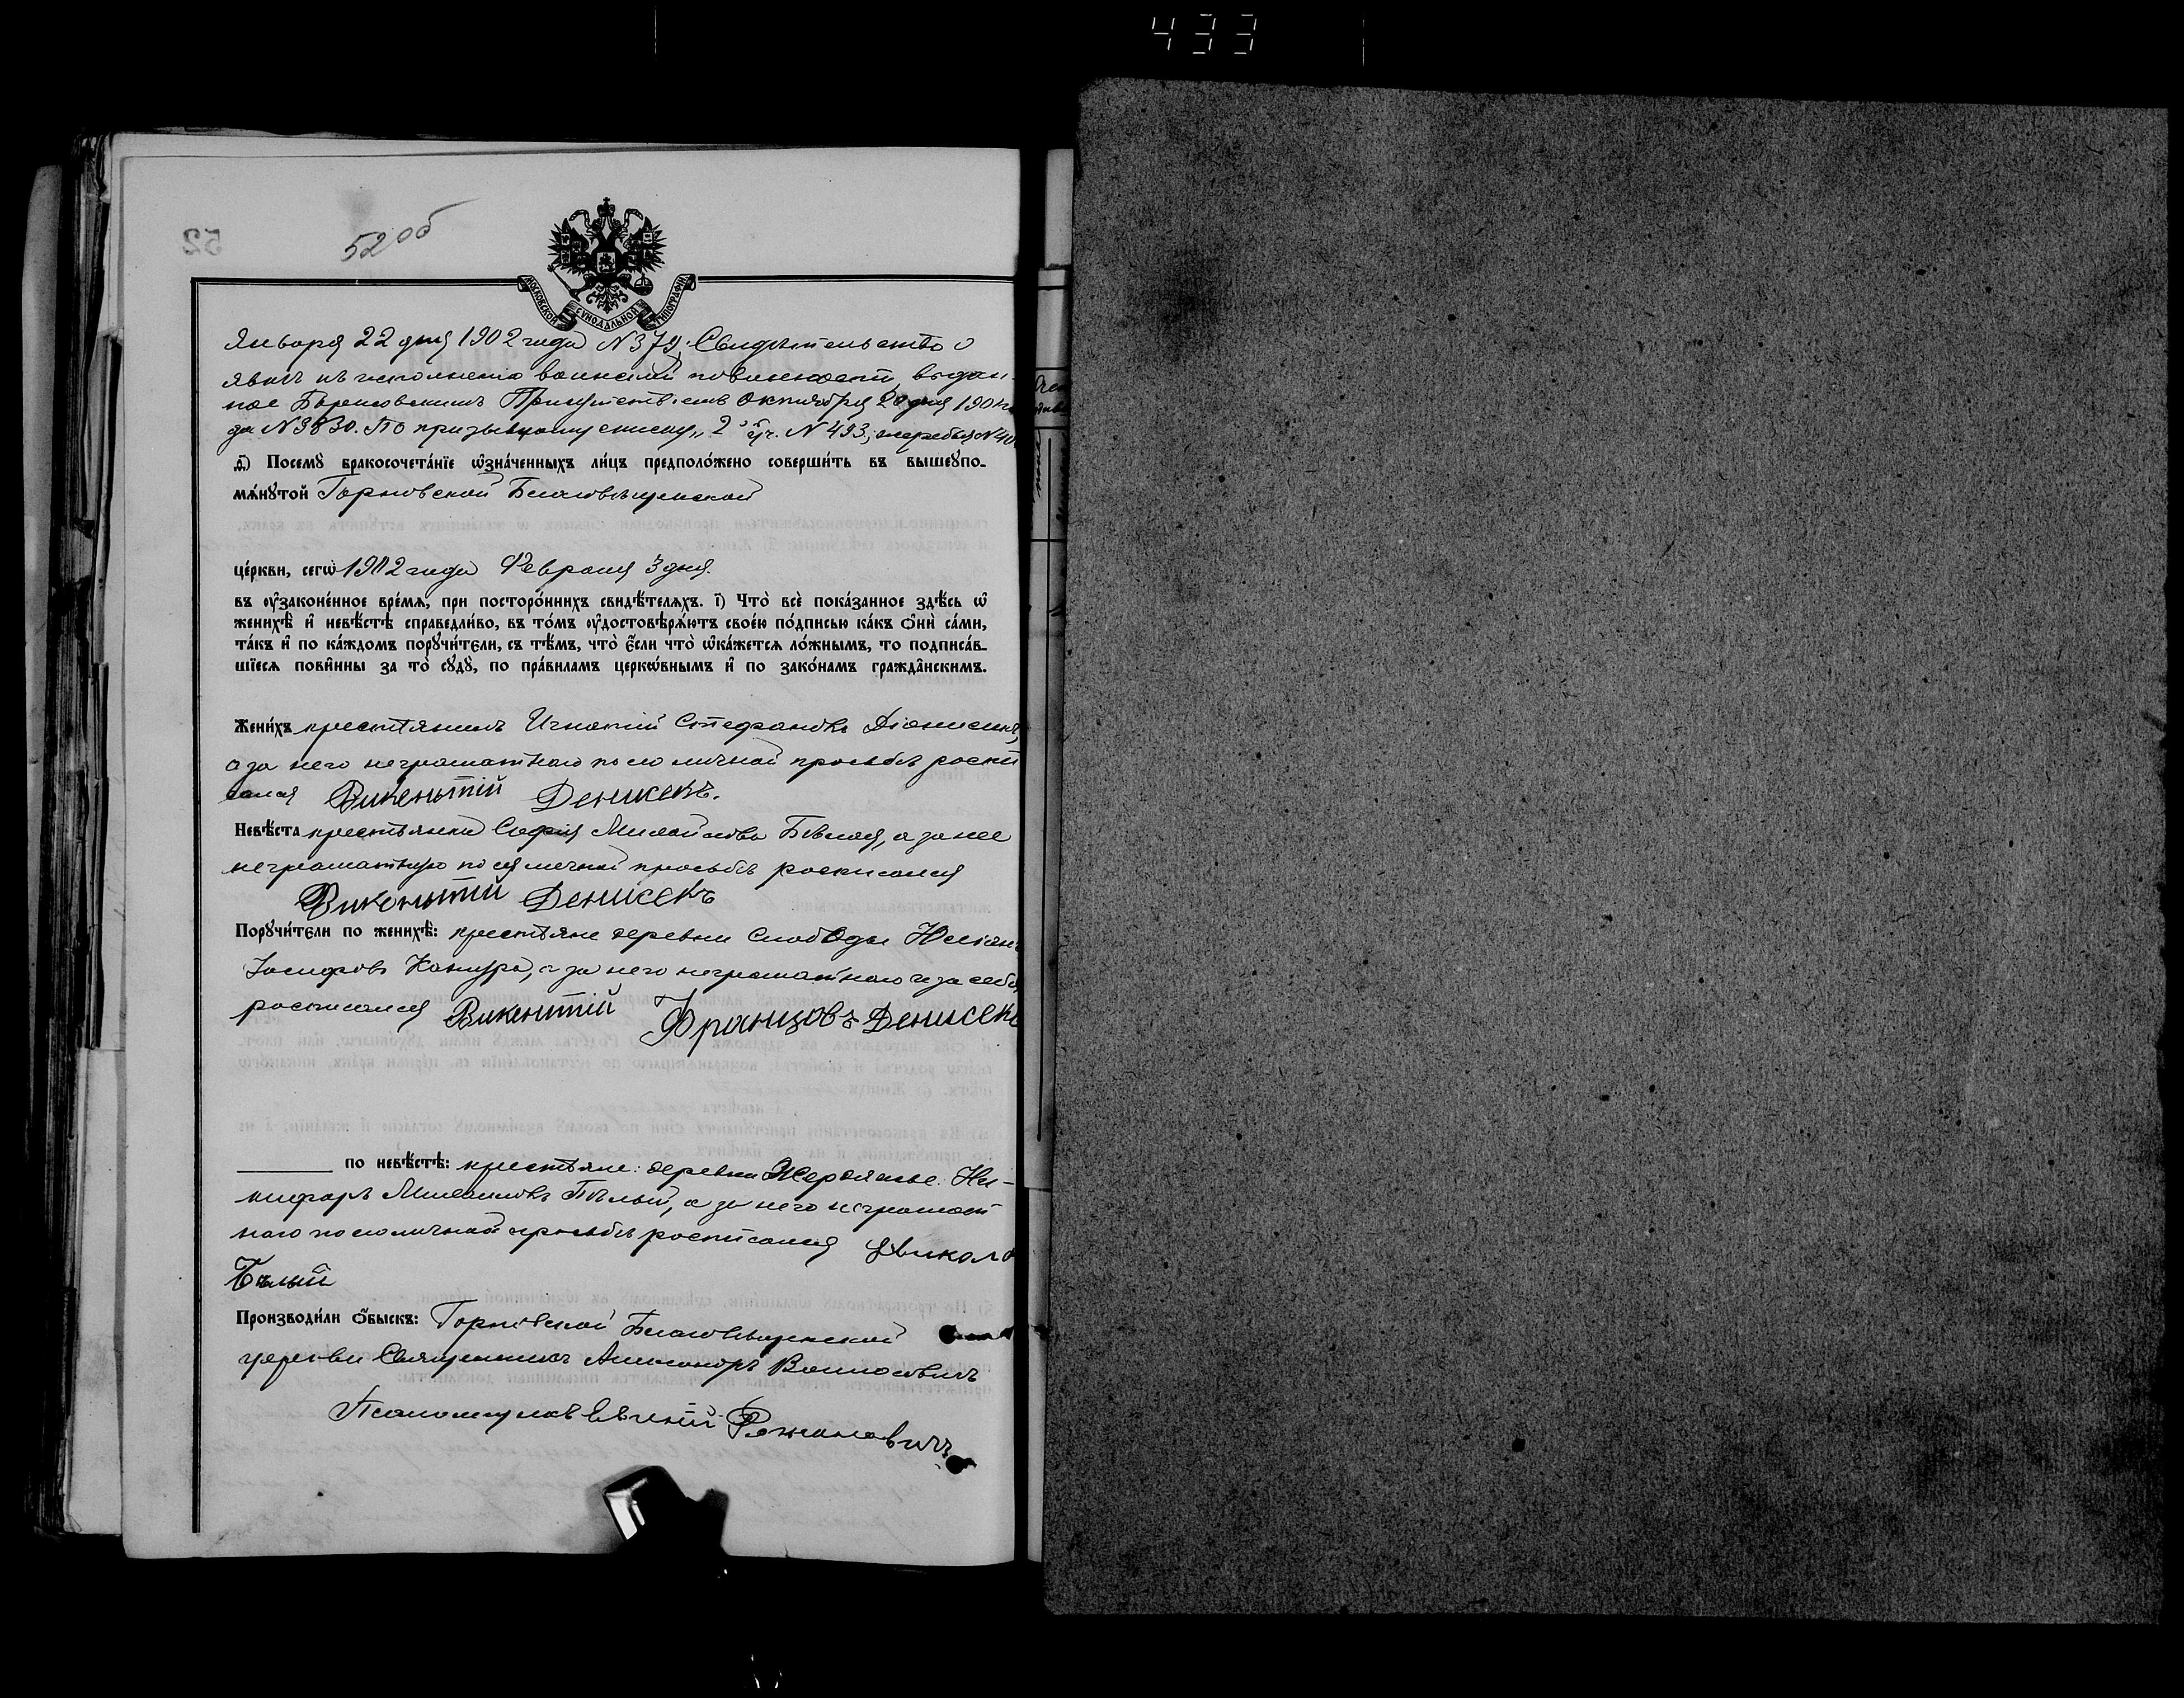 433
52 об
52
МОСКОВСКОЙ СѴНОДАЛЬНОЙ ТИПОГРАФІИ
Января 22 дня 1902 года N 379; Свидѣтельство о
явкѣ къ исполненію воинской повинности, выдан-
ное Борисовскимъ Присутствіемъ Октября 20 дня 190
да N 3830. По призывному списку 2 уч. N 493; жеребья N 40
д҃) Посемꙋ бракосочета́нїе ѡ҆зна́ченныхъ ли́цъ предполо́жено соверши́ть въ вышеꙋпо-
мѧ́нꙋтой Горновской Благовѣщенской
це́ркви, сегѡ̀ 1902 года Февраля 3 дня.
въ ᲂу҆законе́нное вре́мѧ, при посторо́ннихъ свидѣ́телѧхъ. і҃) Что̀ всѐ пока́занное здѣ́сь ѡ҆
женихѣ̀ и҆ невѣ́стѣ справедли́во, въ то́мъ ᲂу҆достовѣрѧ́ютъ свое́ю по́дписью ка́къ ѻ҆нѝ са́ми,
та́къ и҆ по ка́ждомъ порꙋчи́тели, съ тѣ́мъ, что̀ є҆́сли что̀ ѡ҆ка́жетсѧ ло́жнымъ, то подписа́в-
шїесѧ пови́нны за то̀ сꙋдꙋ̀, по пра́виламъ церкѡ́внымъ и҆ по зако́намъ гражда́нскимъ.
Жени́хъ крестьянинъ Игнатій Стефановъ Діонисикъ,
а за него неграматнаго по его личной просьбѣ роспи
сался Викентій Денисекъ.
Невѣ́ста крестьянка Софія Михайлова Бѣлая, а за нее
неграматную по ея личной просьбѣ росписался
Викентій Денисекъ
Порꙋчи́тели по женихѣ̀: крестьяне деревни Слободы Юліанъ
Іосифовъ, а за него неграматнаго и за себя
росписался Викентій Францовъ Денисекъ
по невѣ́стѣ: крестьяне: деревни Жерделяжье Ни-
кифоръ Михаиловъ Бѣлый, а за него неграмат
наго по его личной просьбѣ росписался
Бѣлый
Производи́ли ѻ҆́быскъ: Горновской Благовѣщенской
церкви Священникъ Александръ
Псаломщикъ Евгеній Романовичъ